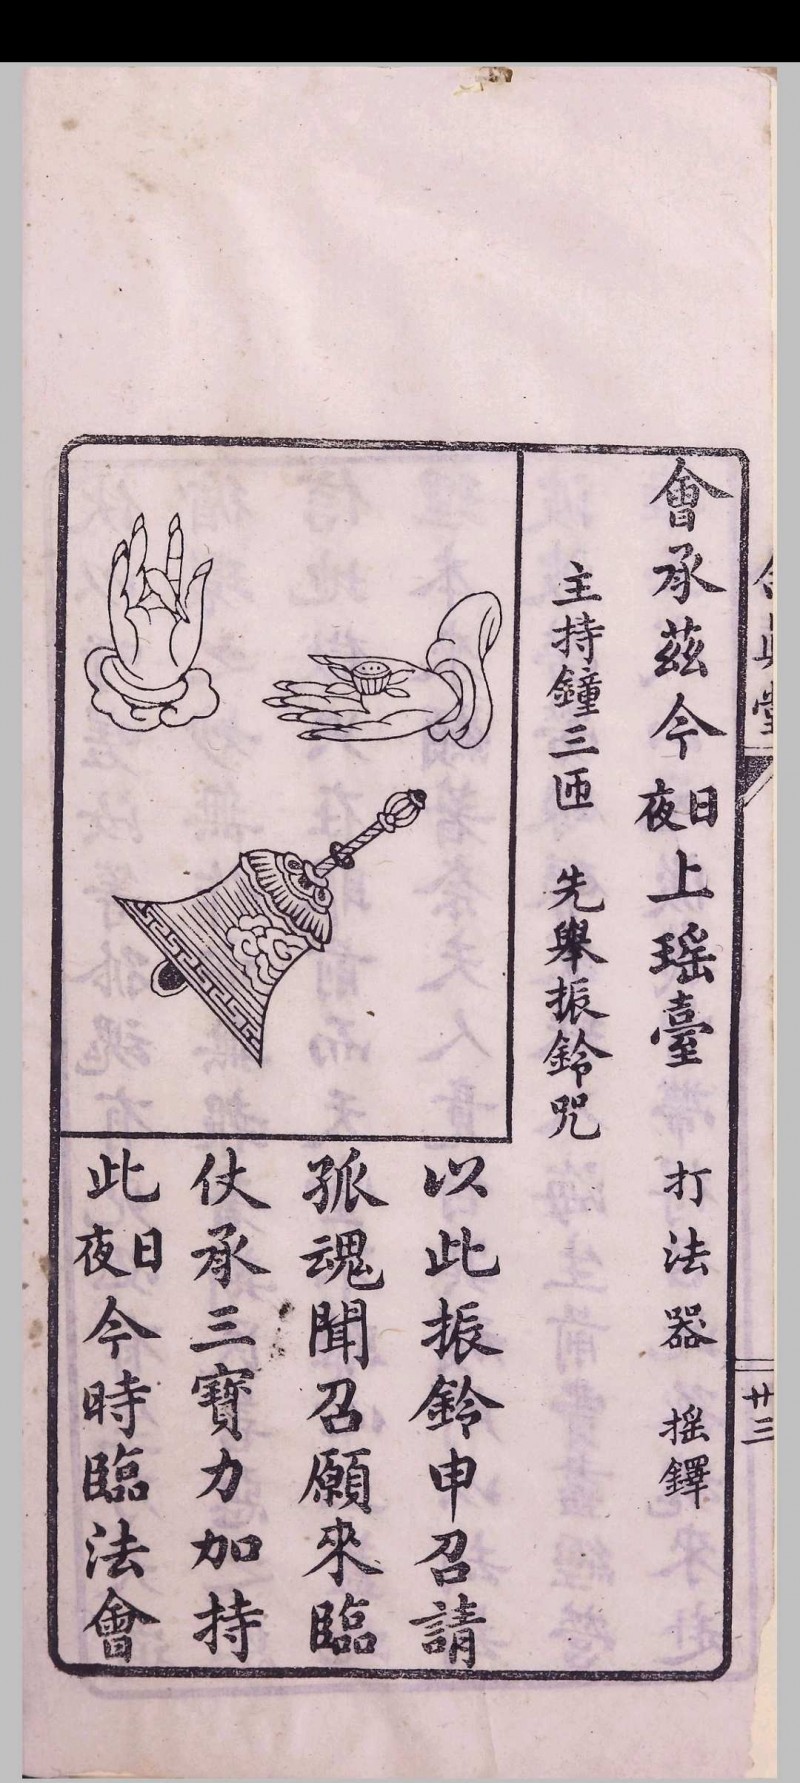 會承茲今日夜上瑶臺 打法器 摇鐸
主持鐘三匝 先舉振鈴咒
以此振鈴申召請
孤魂聞召願來臨
仗承三寶力加持
此日夜今時臨法會
廿三